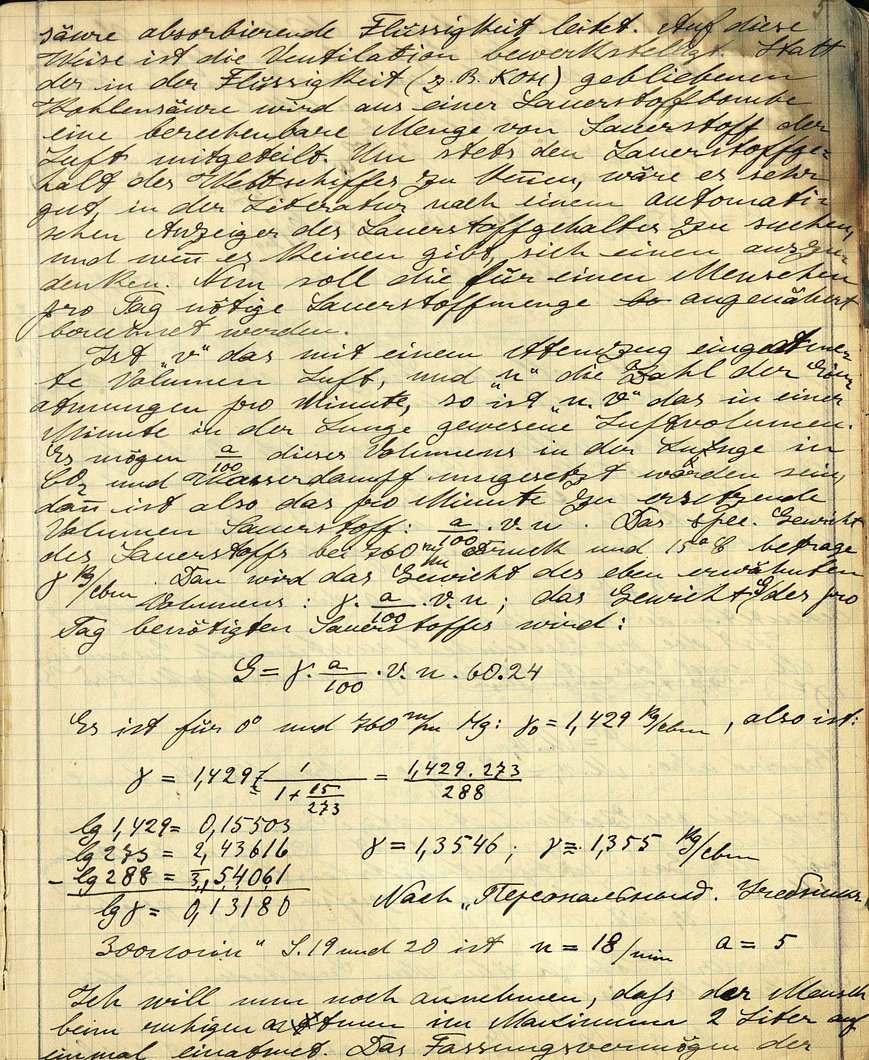 säure absorbierende Flüssigkeit leitet. Auf diese
Weise ist die Ventilation bewerkstelligt. Statt
der in der Flüssigkeit (z. B. KOH) gebliebenen
Kohlensäure wird aus einer Sauerstoffbombe
eine berechenbare Menge von Sauerstoff der
Luft mitgeteilt. Um stets den Sauerstoffge-
halt des Weltschiffes zu kennen, wäre es sehr
gut, in der Literatur nach einem automati-
schen Anzeiger des Sauerstoffgehaltes zu suchen,
und wenn es keinen gibt, sich einen auszu-
denken. Nun soll die für einen Menschen
pro Tag nötige Sauerstoffmenge angenähert
berechnet werden.
Ist „v“ das mit einem Atemzug eingeatme-
te Volumen Luft, und „n“ die Zahl der Ein-
atmungen pro Minute, so ist „n.v“ das in einer
Minute in der Lunge gewesene Luftvolumen.
Es mögen a/100 dieses Volumens in der Lunge in
CO2 und Wasserdampf umgesetzt worden sein,
dann ist also das pro Minute zu ersetzende
Volumen Sauerstoff: a/100 . v. n . Das spec. Gewicht
des Sauerstoffs bei 760 m/m Druck und 15° C betrage
γ kg/cbm. Dan wird das Gewicht des eben erwähnten
Volumens : γ. a/100 . v. n ; das Gewicht G des pro
Tag benötigten Sauerstoffes wird:
G = γ. a/100 . v. n . 60.24
Es ist für 0° und 760 m/m Hg: γ0 = 1,429 kg/cbm, also ist:
γ = 1,429. 1/(1+15/273) = 1,429.273/288
lg 1,429 = 0,15503
lg 273 = 2,43616
γ = 1,3546; γ = 1,355 kg/cbm
- lg 288 = 3̅,54061
lg γ = 0,13180
Nach „
“ S. 19 und 20 ist n = 18/min a = 5
Ich will nun noch annehmen, dafs der Mensch
beim ruhigen Atmen im Maximum 2 Liter auf
einmal einatmet. Das Fassungsvermögen der